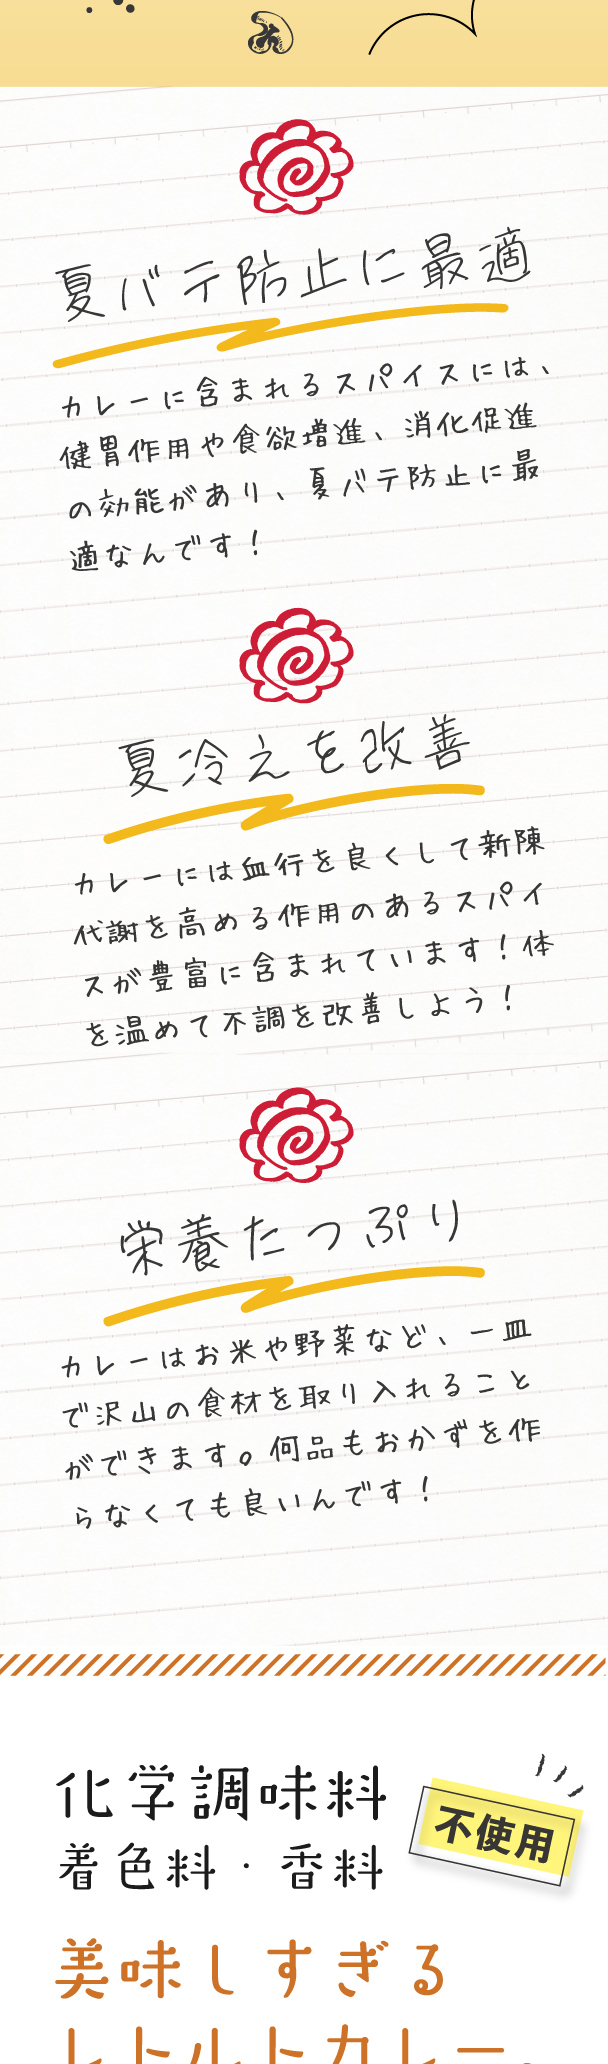 夏バテ防止に最適
カレーに含まれるスパイスには、
健胃作用や食欲増進、消化促進
の効能があり、夏バテ防止に最
適なんです！
夏冷えを改善
カレーには血行を良くして新陳
代謝を高める作用のあるスパイ
スが豊富に含まれています！体
を温めて不調を改善しよう！
栄養たっぷり
カレーはお米や野菜など、一皿
で沢山の食材を取り入れること
ができます。何品もおかずを作
らなくても良いんです！
化学調味料
着色料・香料
不使用
美味しすぎる
レトルトカレー。